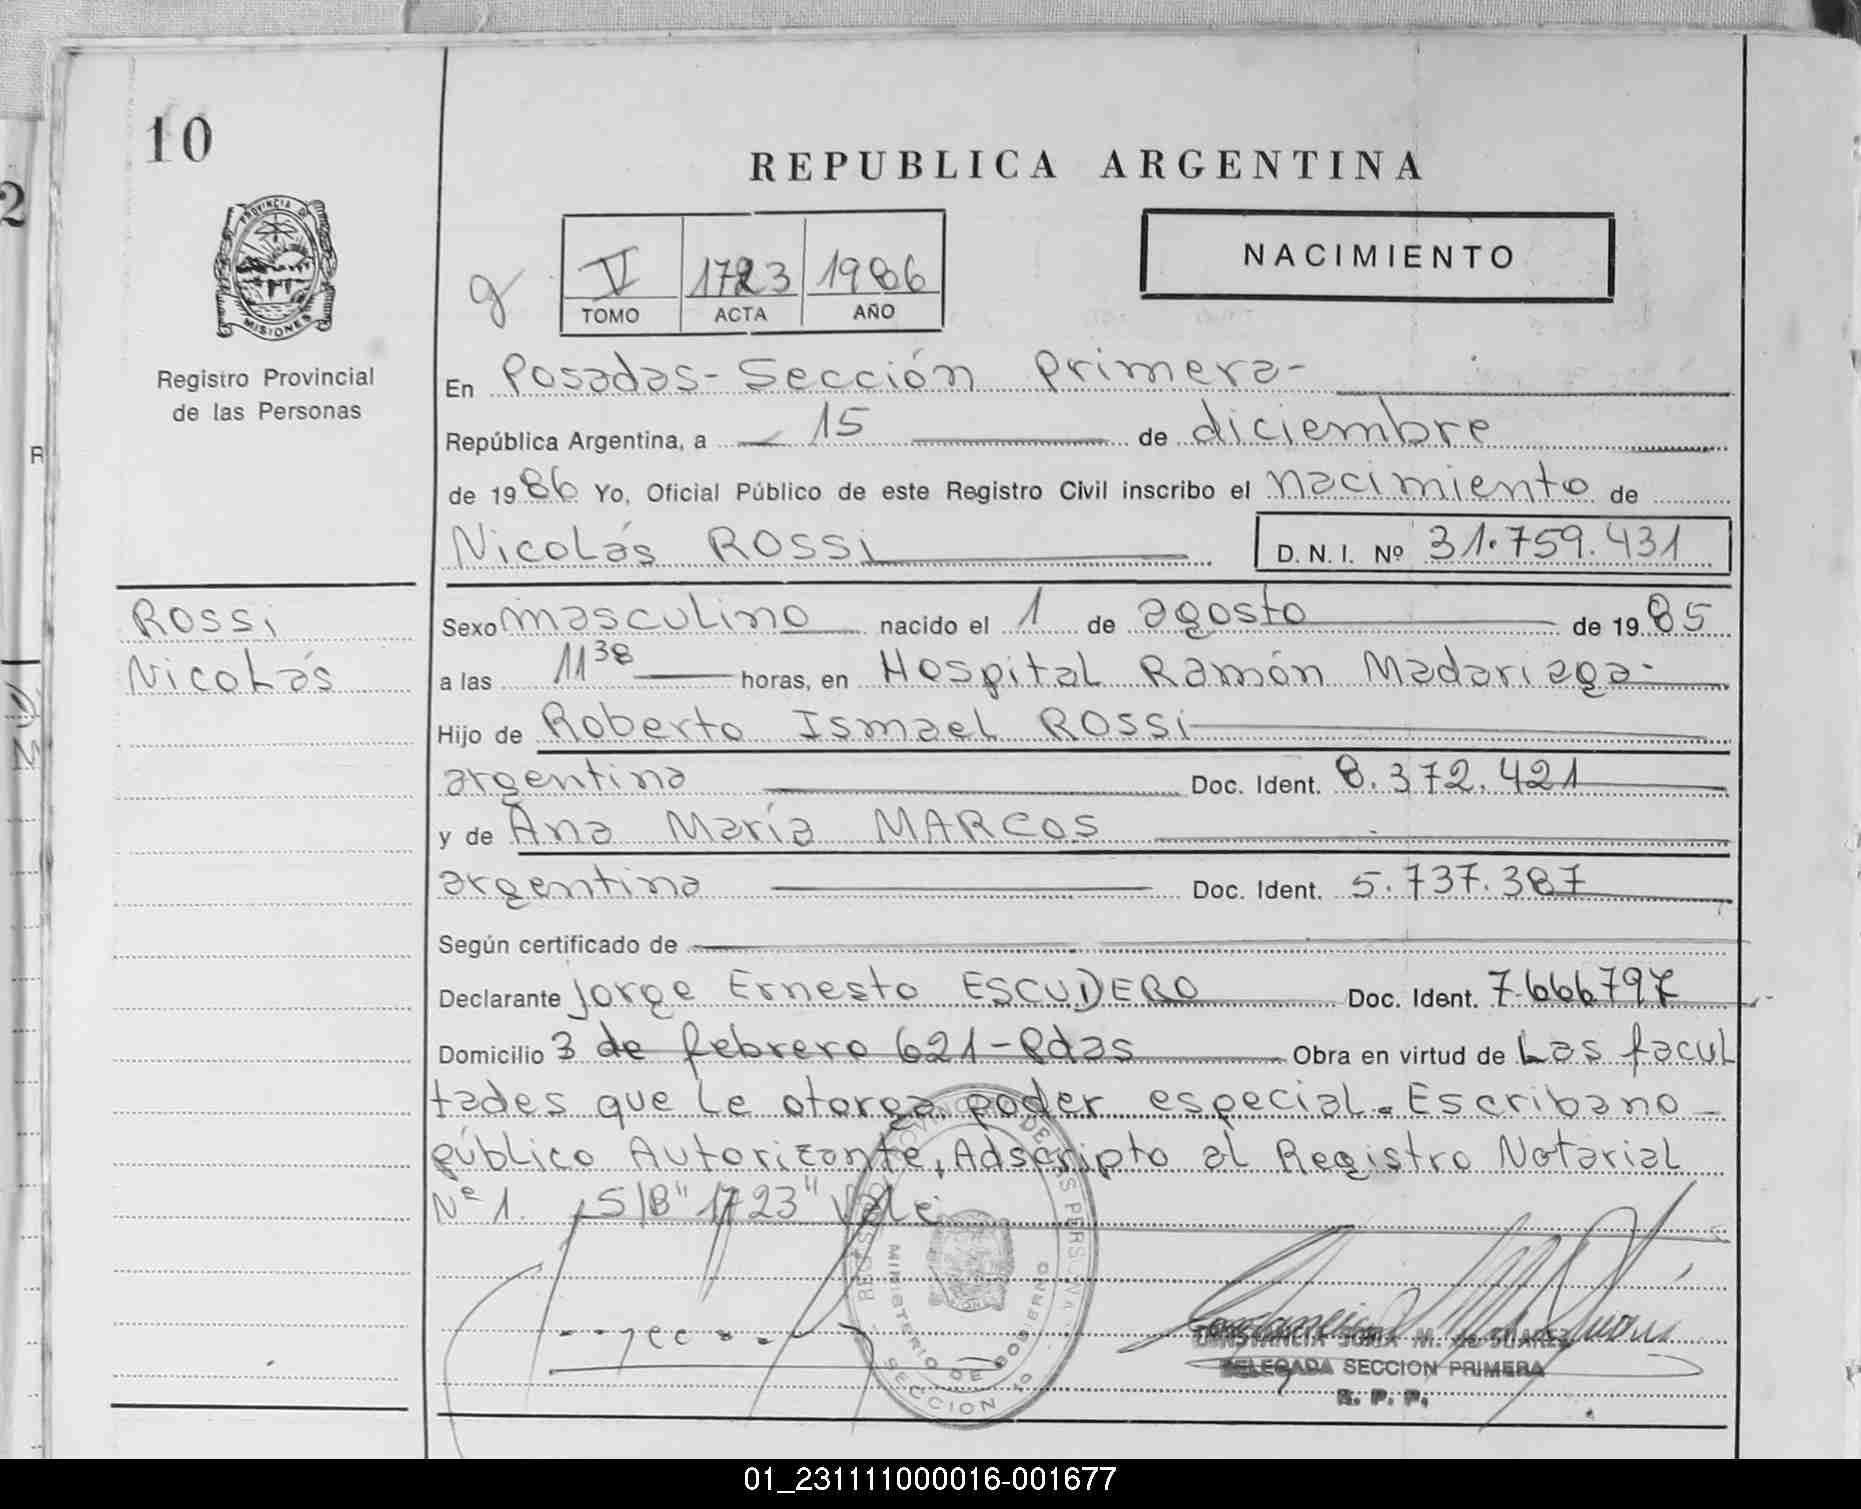 10
REPUBLICA ARGENTINA
PROVINCIA DE
MISIONES
Registro Provincial
de las Personas
V 1723 1986
TOMO ACTA AÑO
NACIMIENTO
En Posadas - Sección primera -
República Argentina, a 15 de diciembre
de 1986 Yo, Oficial Público de este Registro Civil inscribo el nacimiento de
Nicolás ROSSi D. N. I. Nº 31.759.431
Rossi
Nicolás
Sexo masculino nacido el 1 de agosto de 1985
a las 11 38 horas, en Hospital Ramón Madariaga-
Hijo de Roberto Ismael ROSSi
argentina Doc. Ident. 8.372.421
y de Ana María MARCOS
argentina Doc. Ident. 5.737.387
Según certificado de
Declarante Jorge Ernesto ESCUDERO Doc. Ident. 7.666797
Domicilio 3 de febrero 621 - Pdas Obra en virtud de Las facul
tades que le otorga poder especial. Escribano
público Autorizante, Adscripto al Registro Notarial
Nº 1. S/B "1723" Vale
MINISTERIO DE GOBIERNO
SECCION 1º
CONSTANCIA M. de SUAREZ
DELEGADA SECCION PRIMERA
R. P. P.
01_231111000016-001677